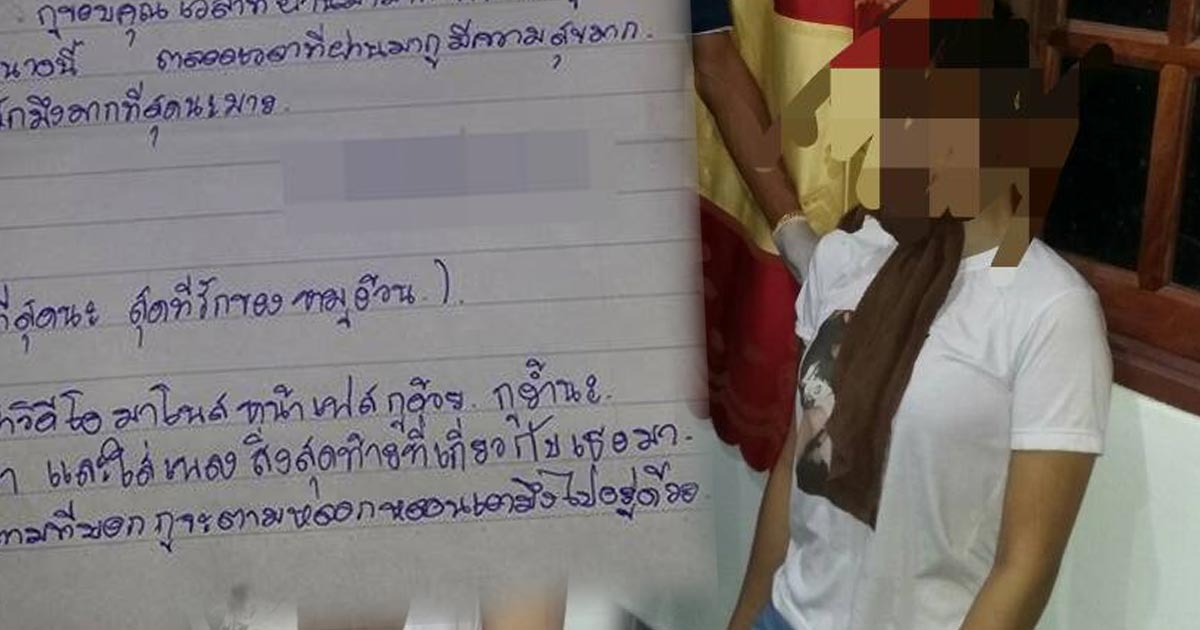 กูขอบคุณเวลาที่
นางนี้ ตลอดเวลาที่ผ่านมากูมีความสุขมาก.
รักมึงมากที่สุดนะมาย.
ที่สุดนะ สุดที่รักของหมูอ้วน.).
วิดีโอมาโพสหน้าเฟสกูด้วย. กูย้ำนะ.
และใส่เพลง สิ่งสุดท้ายที่เกี่ยวกับเธอมา.
ตามที่บอกกูจะตามหลอกหลอนเอามึงไปอยู่ด้วย